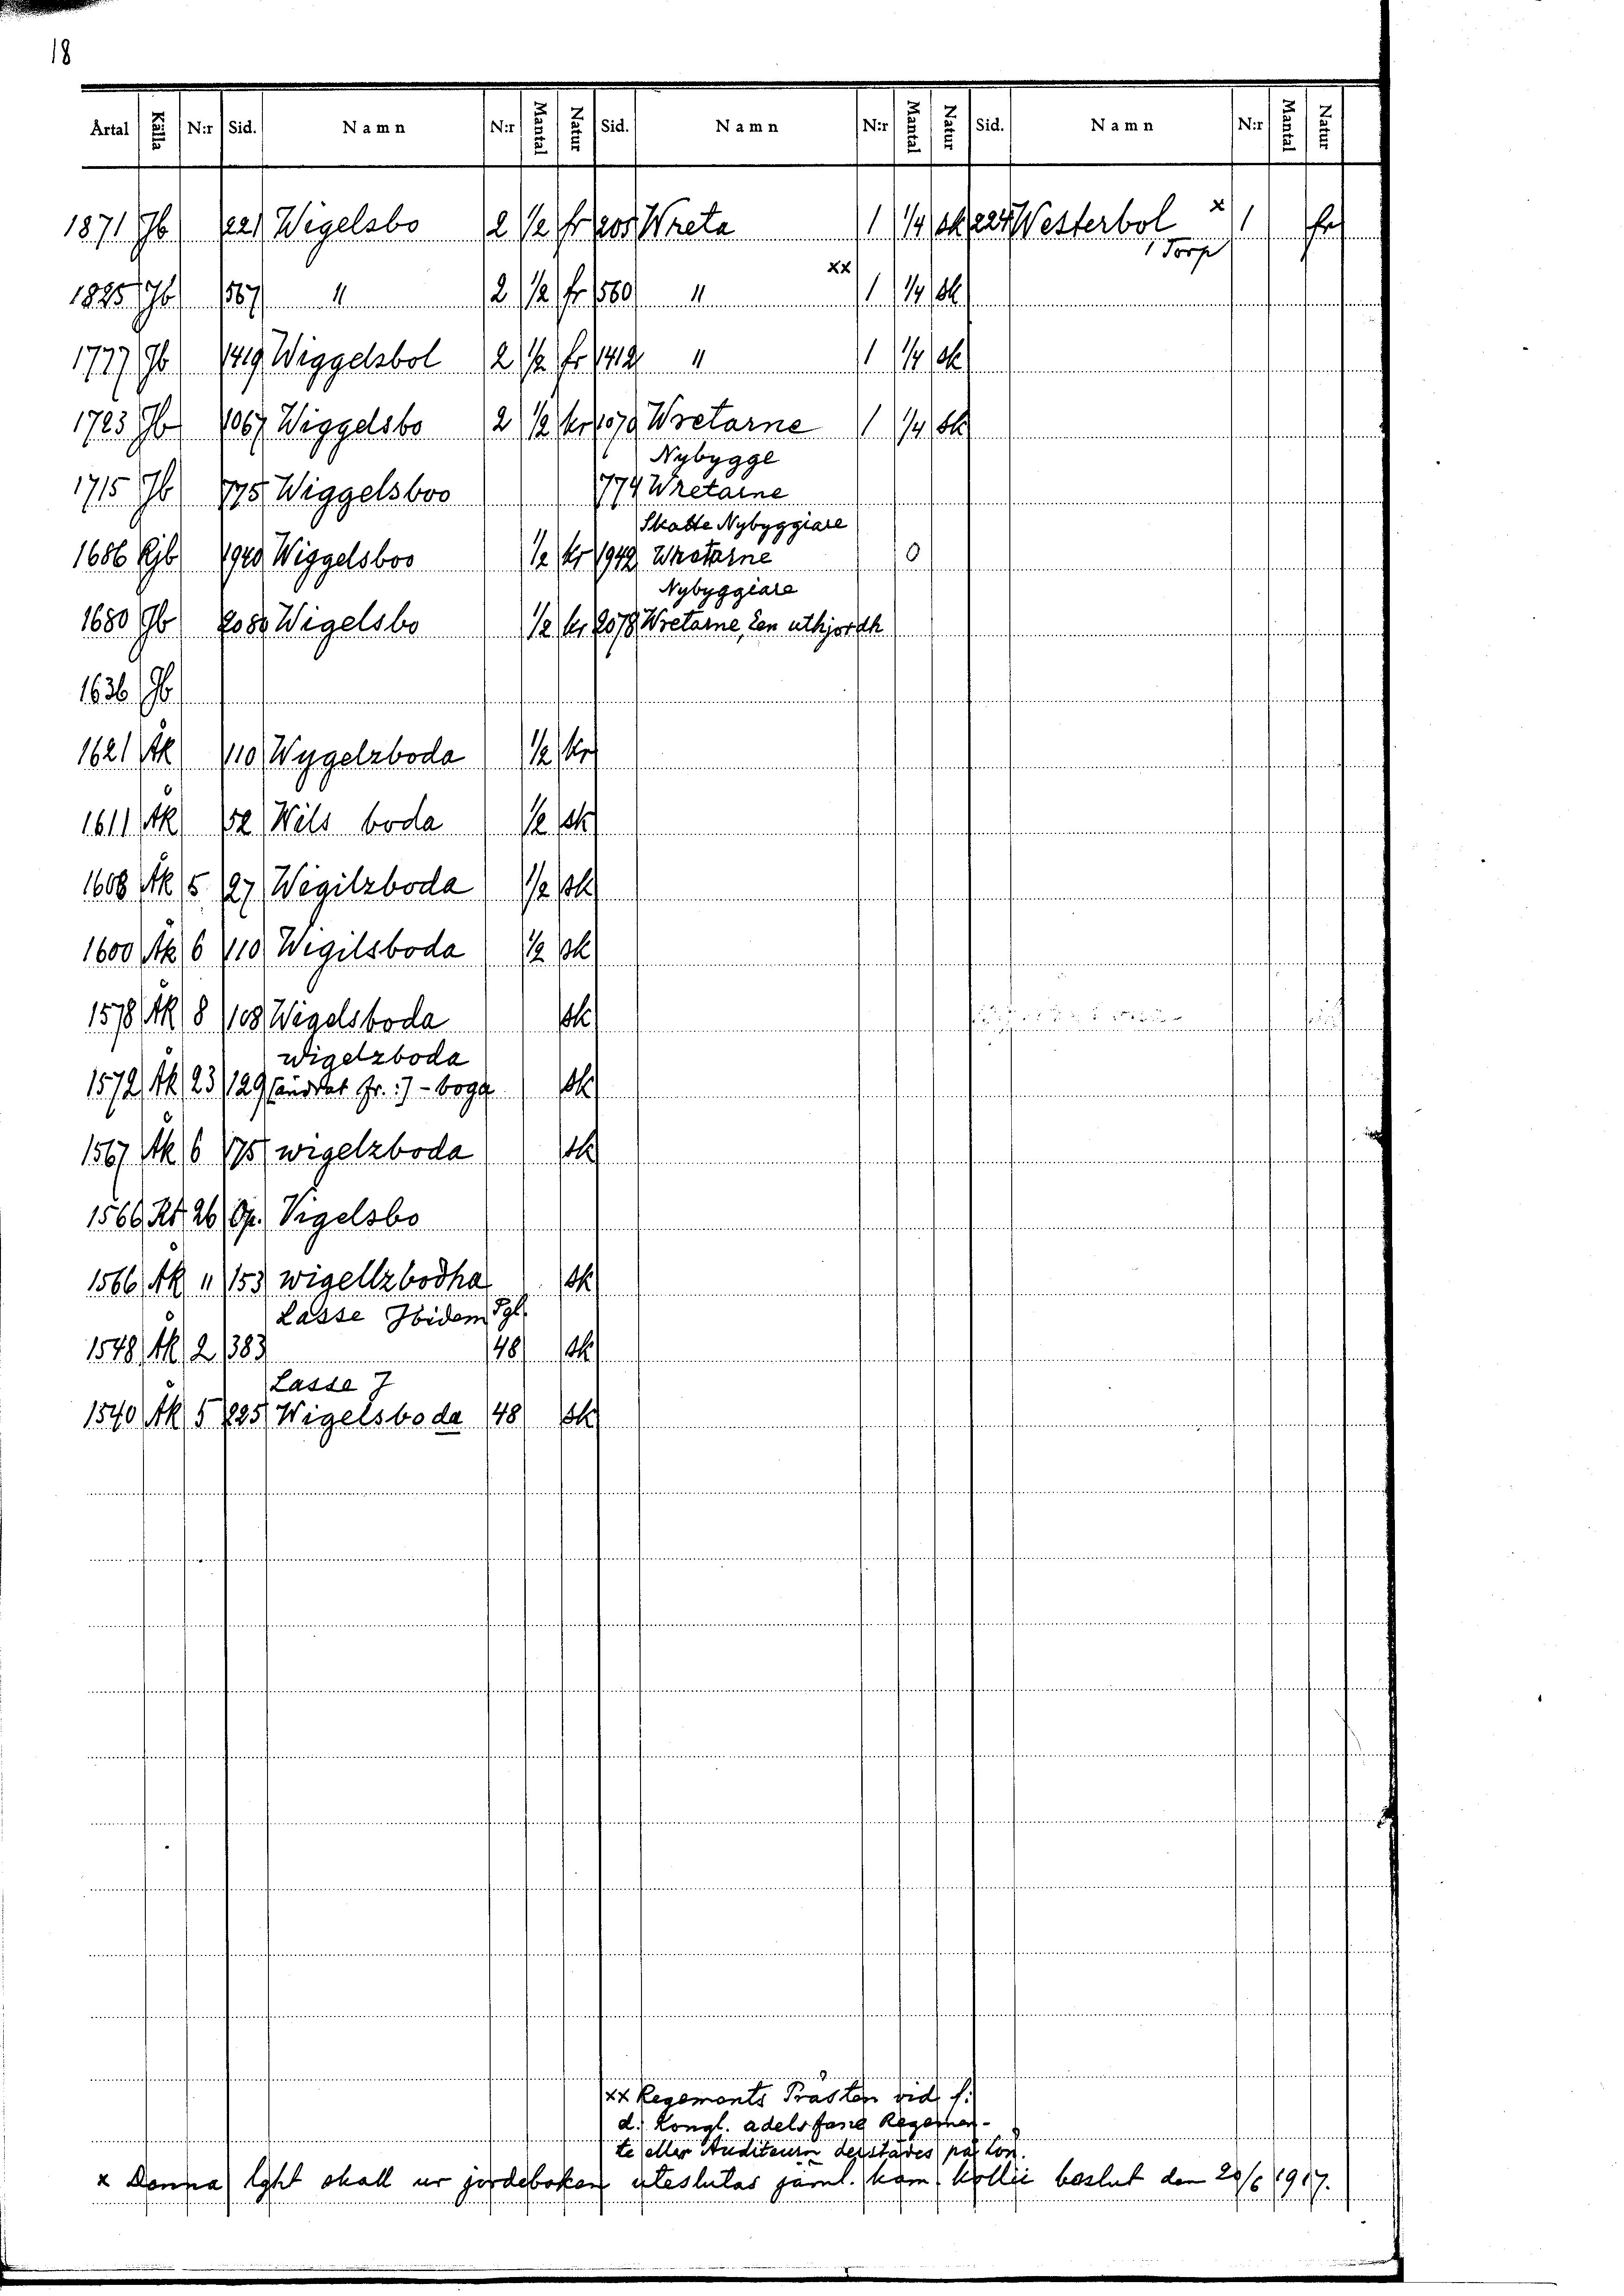 18
Årtal Källa N:r Sid. Namn N:r Mantal Natur Sid. Namn N:r Mantal Natur Sid. Namn N:r Mantal Natur
1871 Jb 221 Wigelsbo 2 1/2 fr 205 Wreta 1 1/4 sk 224 Westerbol x 1 fr
1 Torp
xx
1825 Jb 567 " 2 1/2 fr 560 " 1 1/4 sk
1777 Jb 1419 Wiggelsbol 2 1/2 fr 1412 " 1 1/4 sk
1723 Jb 1067 Wiggelsbo 2 1/2 kr 1070 Wretarne 1 1/4 sk
Nybygge
1715 Jb 775 Wiggelsboo 774 Wretarne
Skatte Nybyggiare
1686 Rjb 1940 Wiggelsboo 1/2 kr 1942 Wretarne 0
Nybyggiare
1680 Jb 2080 Wigelsbo 1/2 kr 2078 Wretarne, Een uthjordh
1636 Jb
1621 Åk 110 Wygelzboda 1/2 kr
1611 Åk 52 Wils boda 1/2 sk
1608 Åk 5 27 Wigilzboda 1/2 sk
1600 Åk 6 110 Wigilsboda 1/2 sk
1578 Åk 8 108 Wigelsboda sk
wigelzboda
1572 Åk 23 129 (ändrat fr. :) -boga sk
1567 Åk 6 75 wigelzboda sk
1566 Rt 26 Op. Vigelsbo
1566 Åk 11 153 wigellzbodha sk
Lasse Jbidem Pgl.
1548 Åk 2 383 48 sk
Lasse J
1540 Åk 5 225 Wigelsboda 48 sk
xx Regements Prästen vid f:
d: Kongl. adelsfane Regemen-
te eller Auditeurn derstädes på lön.
x Denna lght skall ur jordeboken uteslutas jäml. kam. kollii beslut den 20/6 1917.